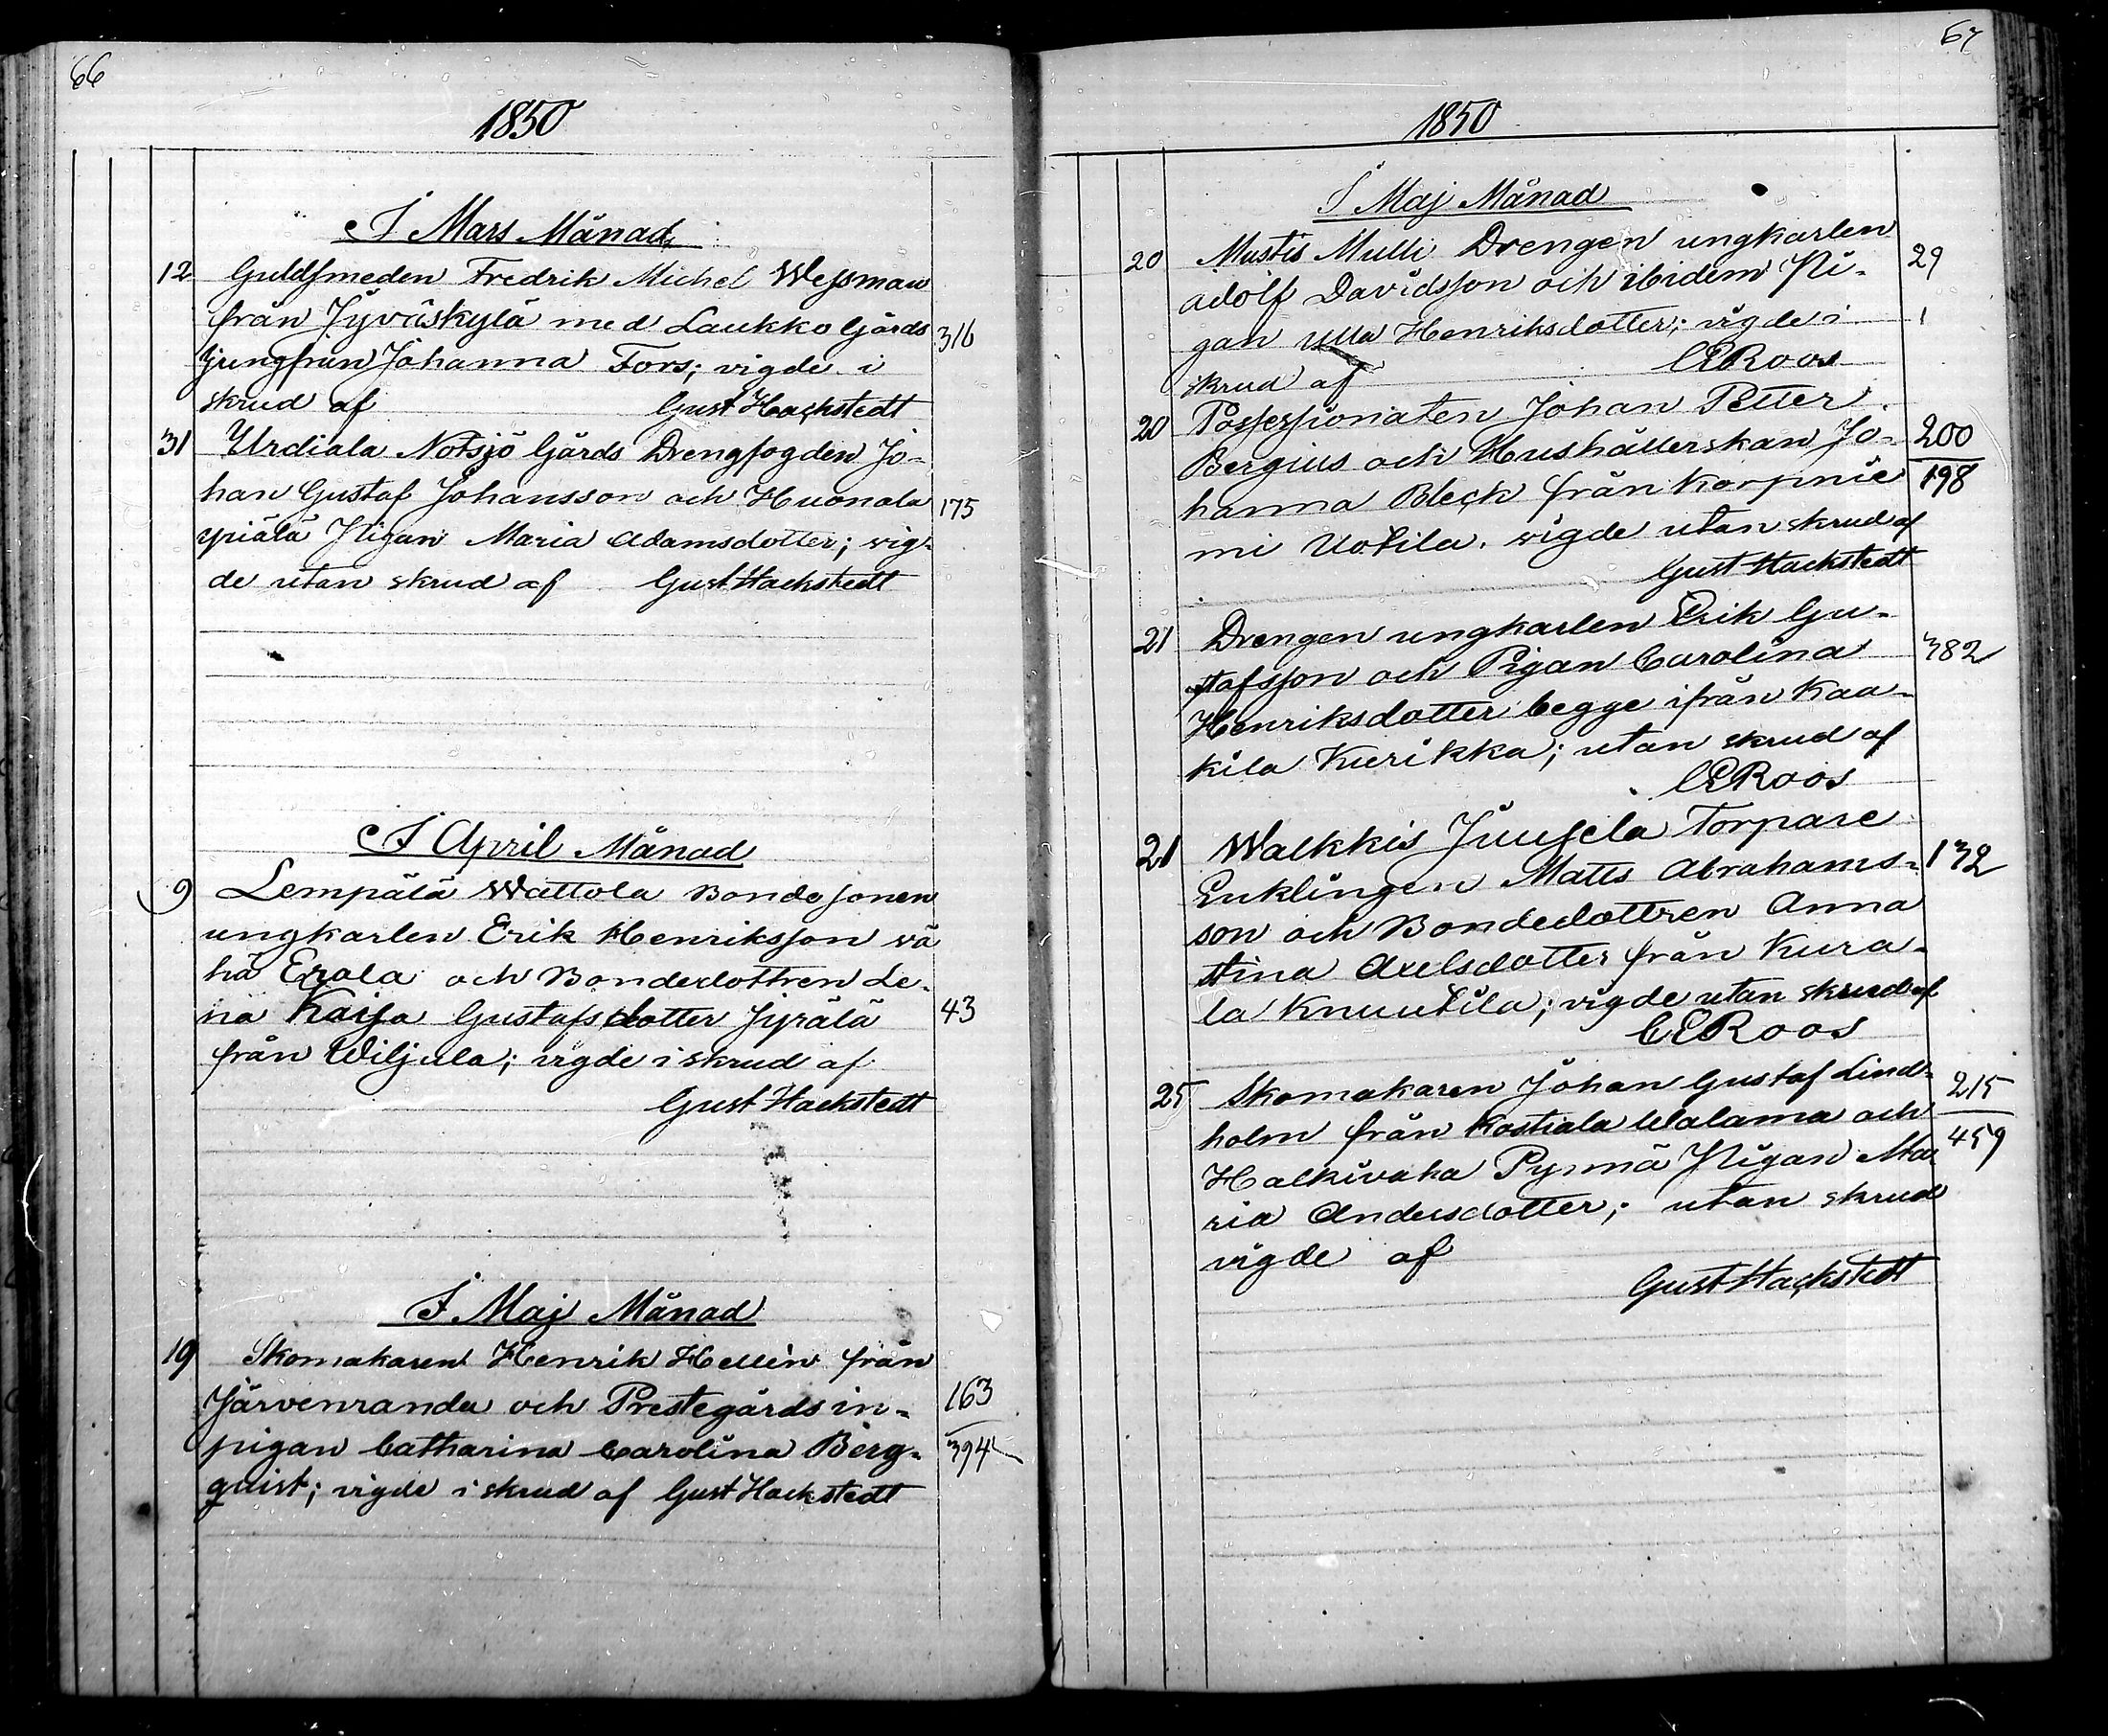 66
1850
I Mars Månad
12 Guldsmeden Fredrik Michel Wessman
från Jyväskylä med Laukko Gårds 316
jungfrun Johanna Fors; vigde i
skrud af Gust Hackstedt
31 Urdiala Notsjö Gårds Drengfogden Jo-
han Gustaf Johansson och Huonola 175
ypiälä Pigan Maria Adamsdotter; vig-
de utan skrud af Gust Hackstedt
I April Månad
9 Lempälä Wattola Bondesonen
ungkarlen Erik Henriksson wä
hä Erola och Bondedottren Le-
na Kaisa Gustafsdotter Jyrälä 43
från Wiljula; vigde i skrud af
Gust Hackstedt
I Maj Månad
19 Skomakaren Henrik Hellin från
Järvenranda och Prestegårds in- 163
pigan Catharina Carolina Berg- 394
quist; vigde i skrud af Gust Hackstedt
67
1850
I Maj Månad
20 Mustis Mulli Drengen ungkarlen 29
Adolf Davidsson och ibidem Pi-
gan Ulla Henriksdotter; vigde i 1
skrud af CERoos
20 Possessionaten Johan Petter
Bergius och Hushållerskan Jo- 200
hanna Bleck från Korpnie 198
mi Uotila. vigde utan skrud af
Gust Hackstedt
21 Drengen ungkarlen Erik Gu-
stafsson och Pigan Carolina 382
Henriksdotter begge ifrån Kaa-
kila Kurikka; utan skrud af
CERoos
21 Walkkis Juusela Torpare
Enklingen Matts Abrahams- 132
son och Bondedottren Anna
Stina Axelsdotter från Kura-
la Knuutila; vigde utan skrud af
CERoos
25 Skomakaren Johan Gustaf Lind- 215
holm från Kostiala Walama och
Halkivaha Pynnä Pigan Ma 459
ria Andersdotter; utan skrud
vigde af
Gust Hackstedt